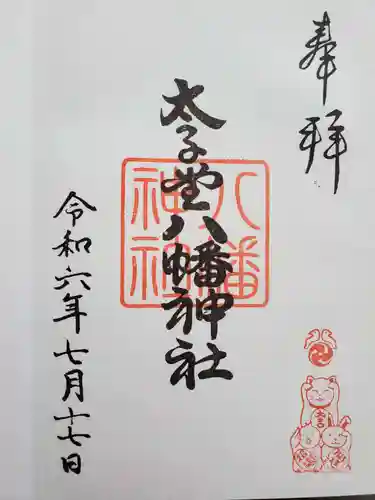 奉拝
太子堂八幡神社
八幡神社
令和六年七月十七日